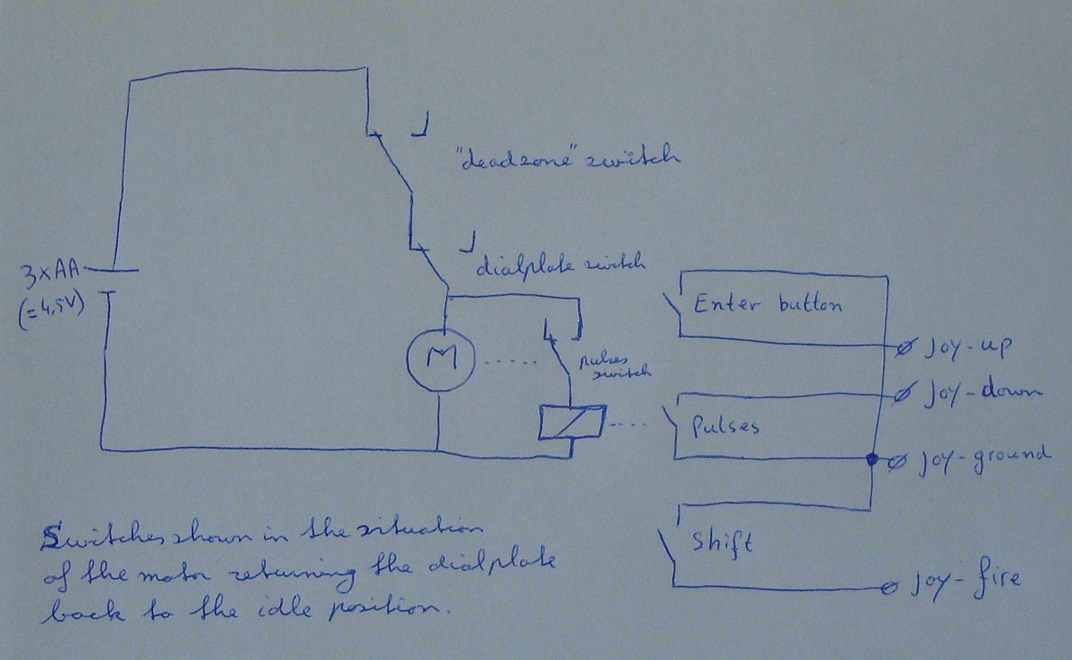 "deadzone" switch
dialplate switch
3xAA
(=4,5V)
M
pulses
switch
Enter button
Joy-up
Joy-down
Pulses
Joy-ground
Shift
Joy-fire
Switches shown in the situation
of the motor returning the dialplate
back to the idle position.